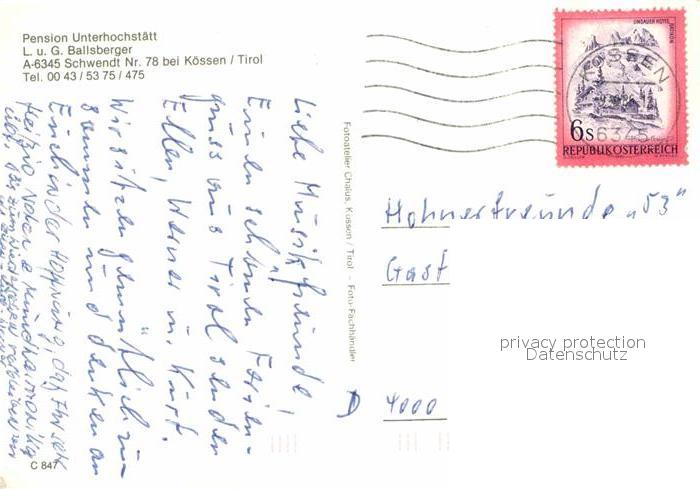 Pension Unterhochstätt
L. u. G. Ballsberger
A-6345 Schwendt Nr. 78 bei Kössen / Tirol
Tel. 00 43 / 53 75 / 475
Liebe Musikfreunde,
Einen schönen Ferien-
gruss aus Tirol senden
Ellen, Werner u. Kurt.
Wir sitzen gemütlich zu-
sammen und denken an
Euch in der Hoffnung, daß Ihr sehr
fleißig
C 847
Fotoatelier Chaius, Kössen / Tirol - Foto-Fachhändler
LINDAUER HÜTTE
RÄTIKON
6 S
REPUBLIK ÖSTERREICH
KÖSSEN
6345
Hohnerfreunde „53"
Gast
D 4000
privacy protection
Datenschutz